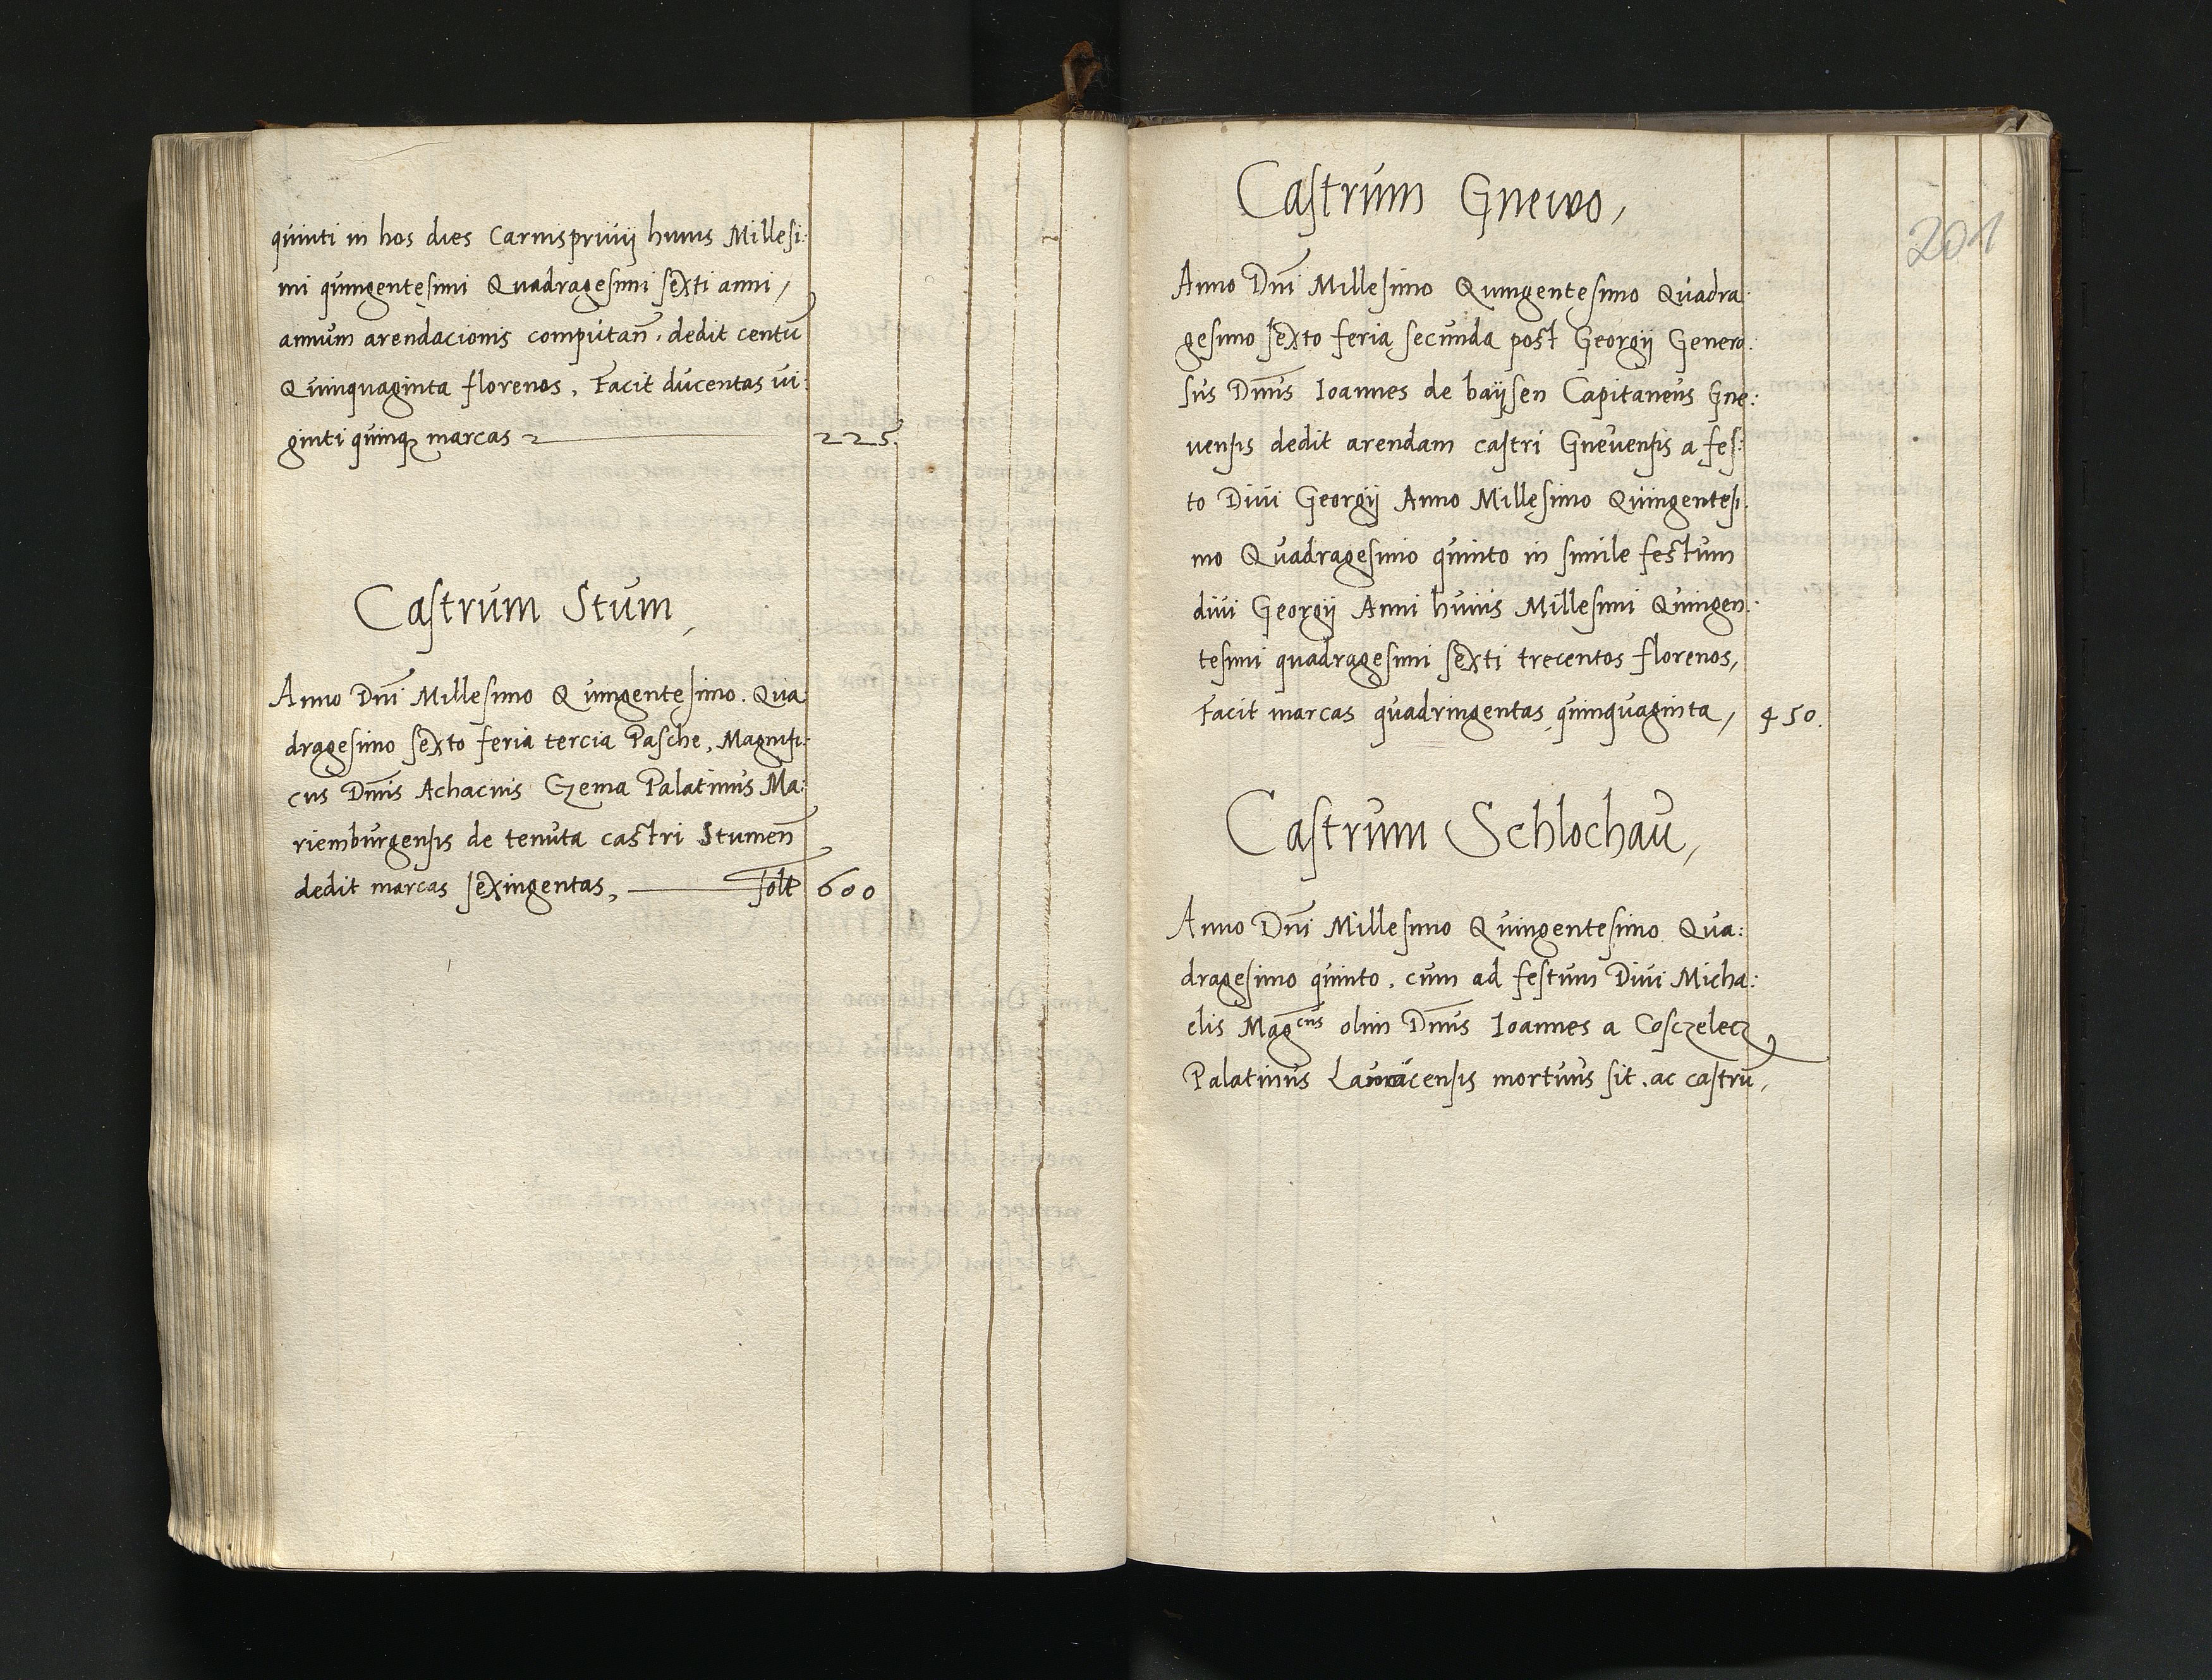 quinti in hos dies Carnisprivij huius Millesi:
mi quingentesimi Quadragesimi sexti anni,
annum arendacionis computan̄. dedit centū
Quinquaginta florenos. Facit ducentas vi:
ginti quinqꝫ marcas 225.
Castrum Stum,
Anno Dn̄i Millesimo Quingentesimo. Qua
dragesimo sexto feria tercia Pasche. Magnifi:
cus Dn̄us Achacius Czema Palatinus Ma:
riemburgensis de tenuta castri Stumen̄
dedit marcas sexingentas, solt 600
201
Castrum Gnewo,
Anno Dn̄i Millesimo Quingentesimo Quadra:
gesimo sexto feria secunda post Georgij Genero:
sus Dn̄us Ioannes de baÿsen Capitaneus Gne:
uensis dedit arendam castri Gneuensis a fes:
to Diui Georgij Anno Millesimo Quingentesi:
mo Quadragesimo quinto in simile festum
diui Georgij Anni huius Millesimi Quingen:
tesimi quadragesimi sexti trecentos florenos,
Facit marcas quadringentas quinquaginta, 450.
Castrum Schlochau,
Anno Dn̄i Millesimo Quingentesimo Qua:
dragesimo quinto. cum ad festum Diui Micha:
elis Magcus olim Dn̄us Ioannes a Cosczelecz
Palatinus mortuus sit. ac castrū,